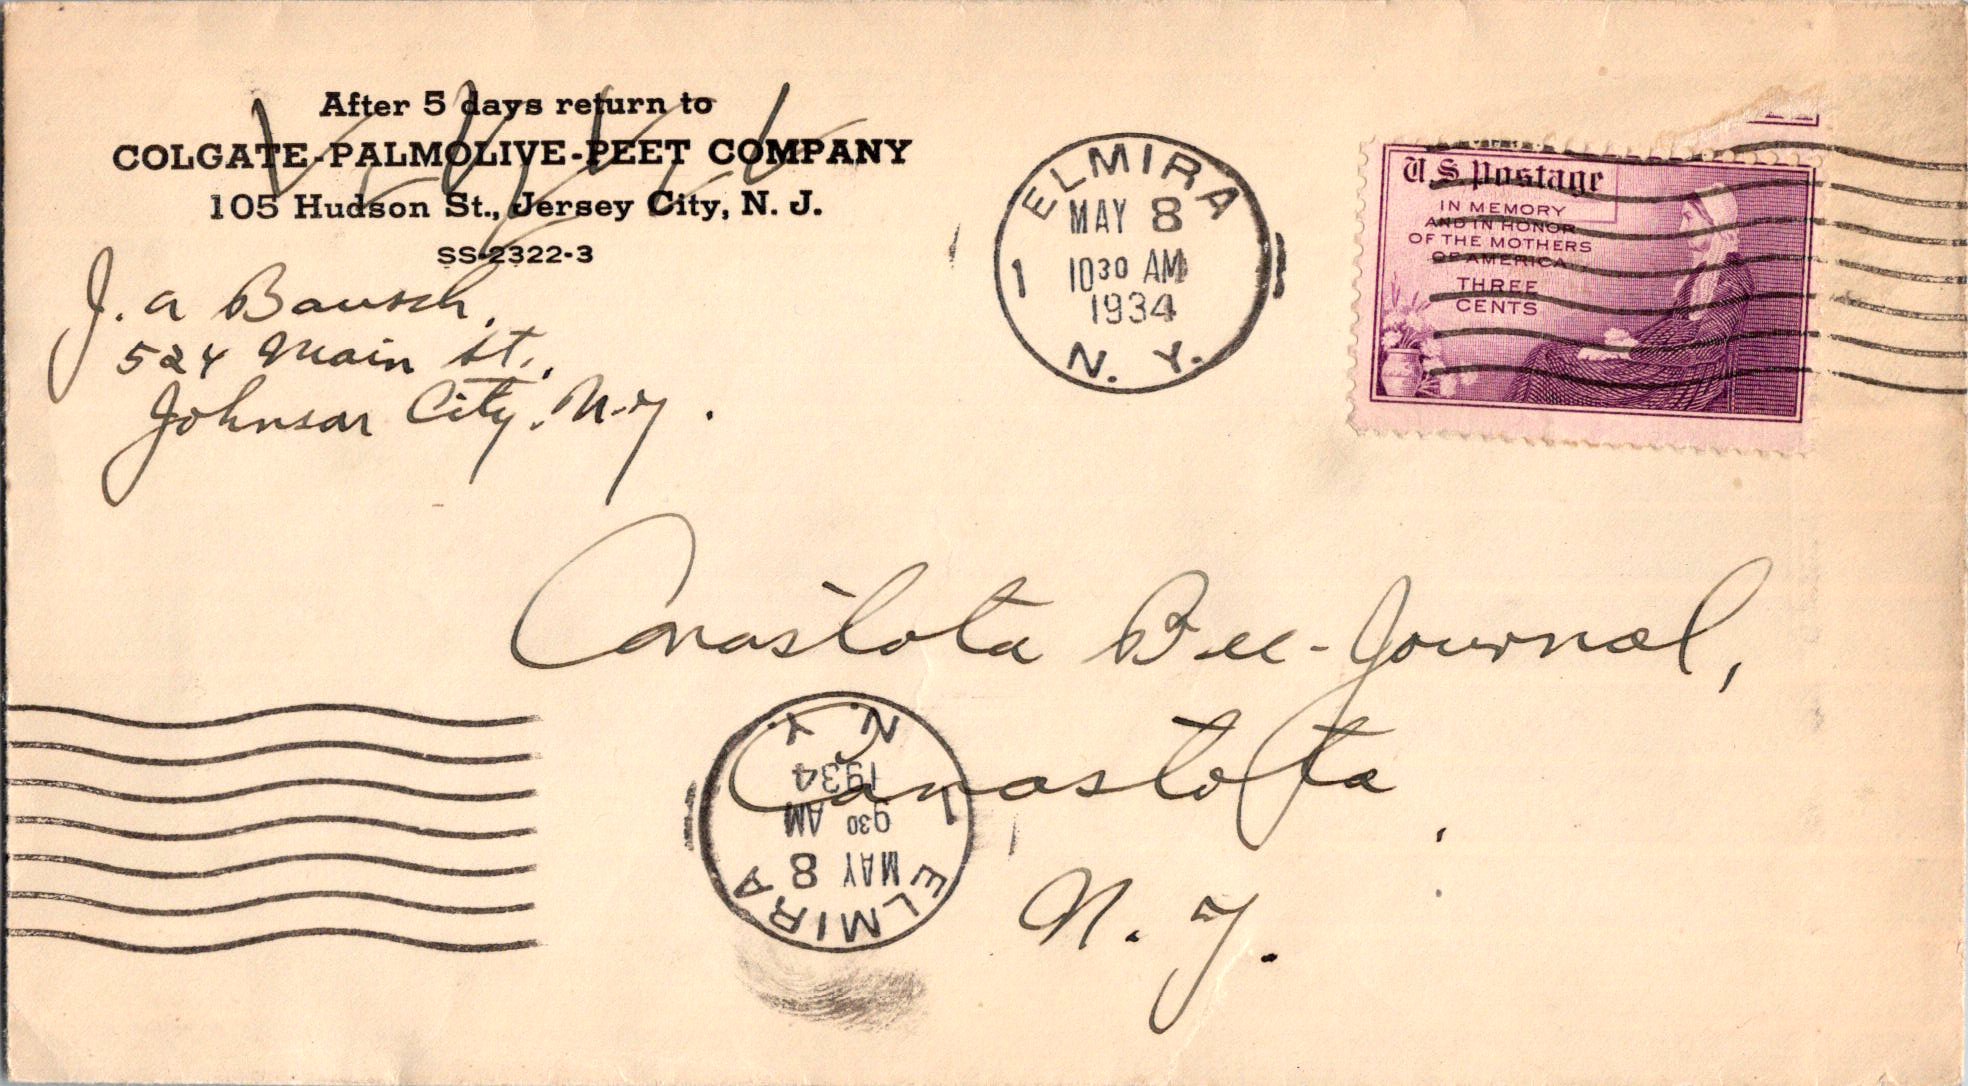 After 5 days return to
COLGATE-PALMOLIVE-PEET COMPANY
105 Hudson St., Jersey City, N. J.
SS-2322-3
J. A Bausch,
524 Main St.,
Johnson City, N.Y.
ELMIRA
MAY 8
1
10 30 AM
1934
N. Y.
U.S. Postage
IN MEMORY
AND IN HONOR
OF THE MOTHERS
OF AMERICA
THREE
CENTS
Canastota Bee-Journal,
Canastota
N. Y.
ELMIRA
MAY 8
1
9 30 AM
1934
N. Y.